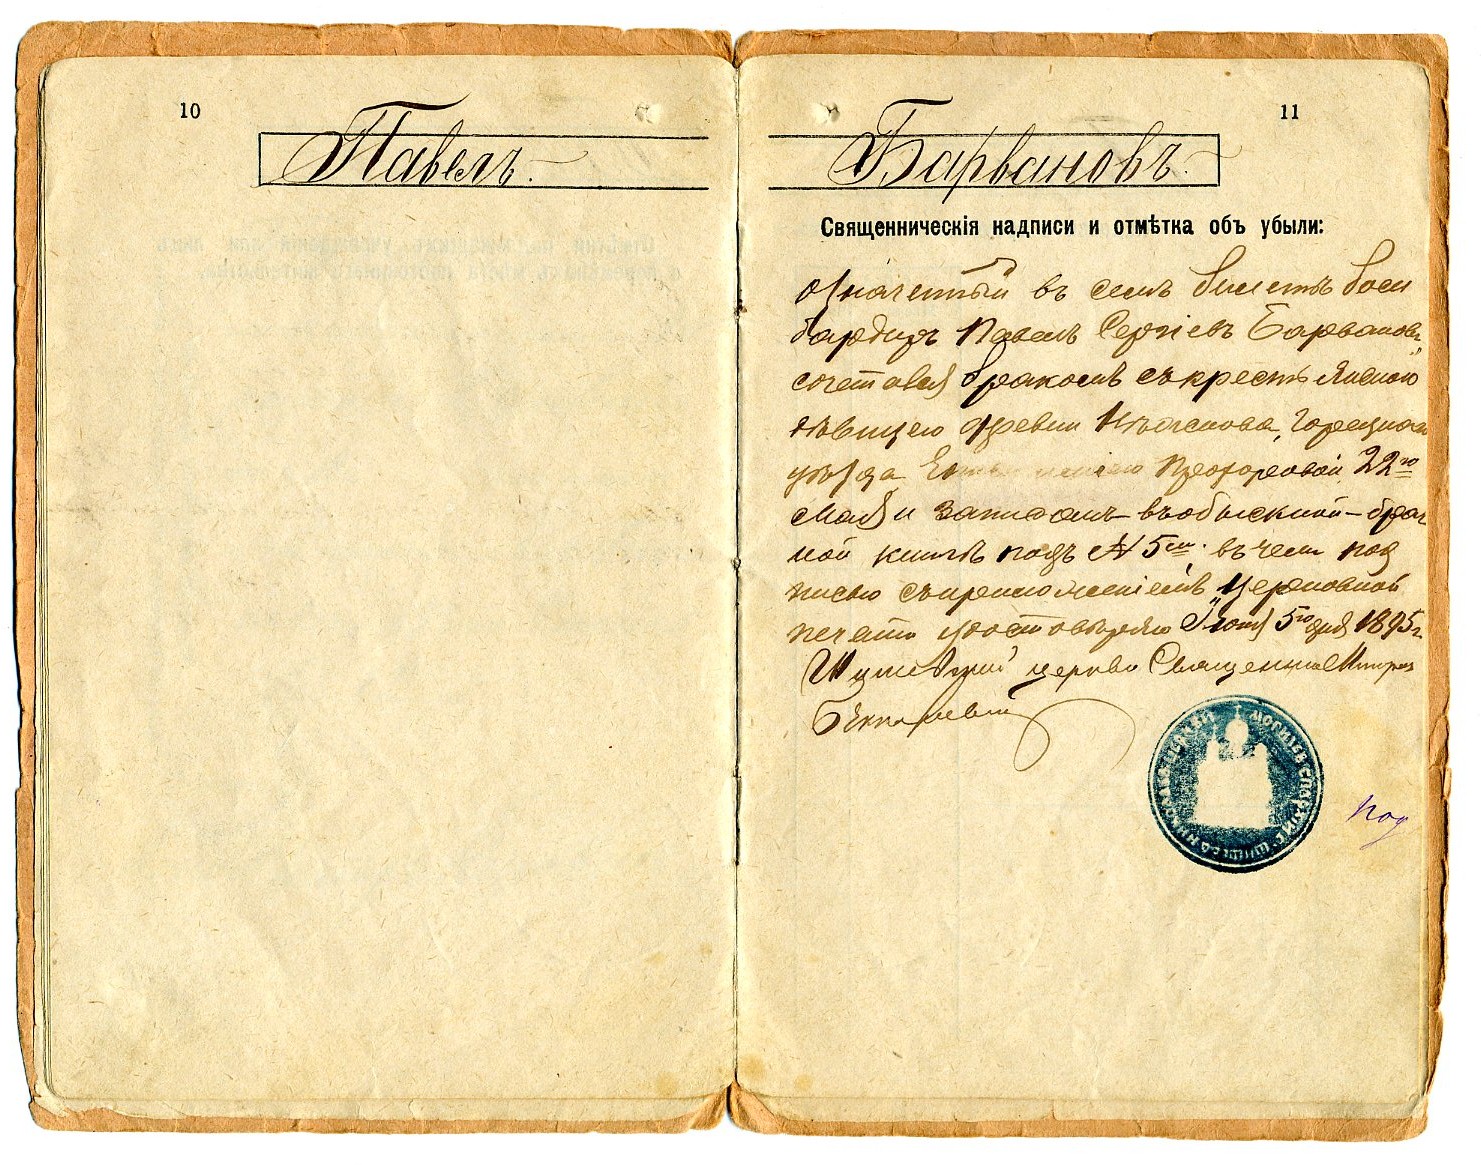 10
Павелъ.
11
Барвановъ.
Священническія надписи и отмѣтка объ убыли:
Означенный въ семъ билетѣ бом
бардиръ Павелъ Сергіевъ Барвановъ
сочетался бракомъ съ крестьянскою
дѣвицею деревни Горецкаго
уѣзда Прохоровой, 22го
Мая и записанъ въ обыскной – брач
ной книгѣ подъ № 5мъ. въ чемъ под
писью съ приложеніемъ церковной
печати удостовѣряю Іюня 5го дня 1895г.
церкви Священникъ
МОГИЛЕВ
под